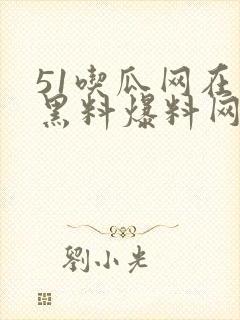 51喫瓜网在
黑料爆料网
劉小光